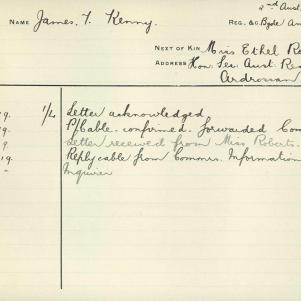 2nd Aust.
NAME James. T. Kenny. REG. &C. Bgde
NEXT OF KIN Miss Ethel Ro
ADDRESS Hon. Sec. Aust. Re
Ardrossan
19. 1/2 Letter acknowledged
19. P/Cable. confirmed. forwarded Com
Letter received from Miss Roberts.
19. Reply cable from Commrs. Information
Inquirer